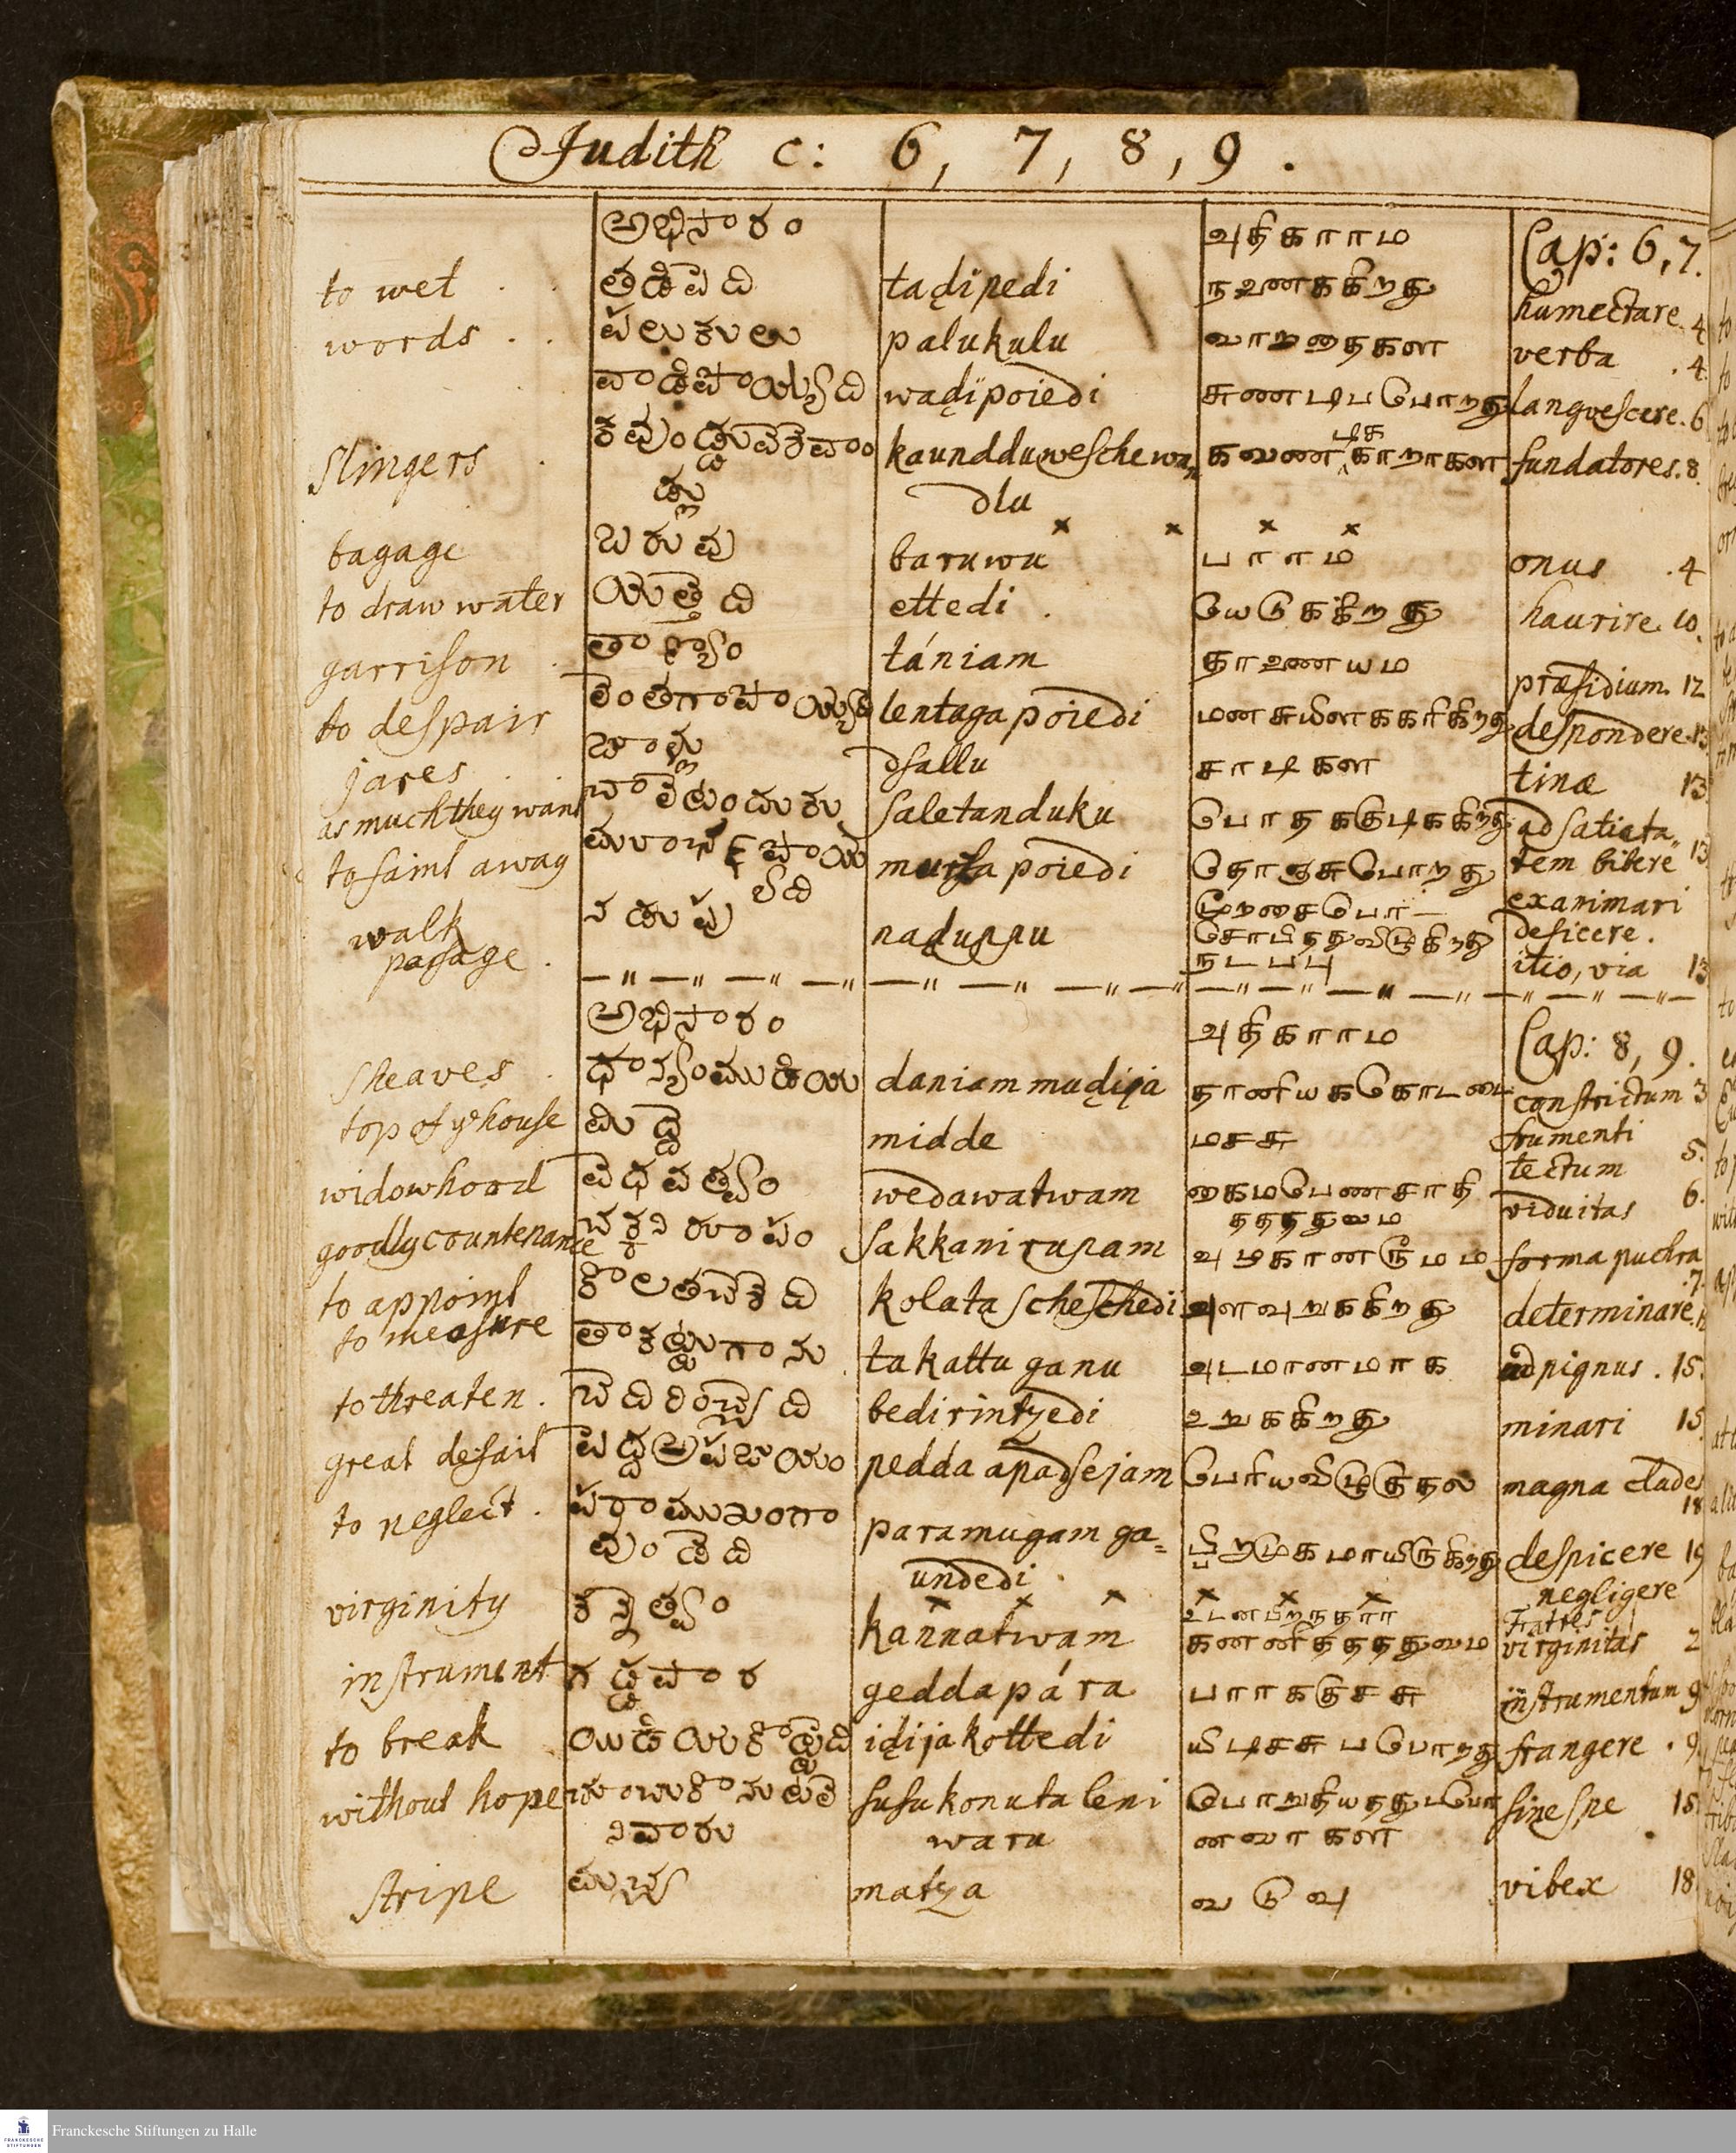 Judith c: 6, 7, 8, 9.
అధికారం அதிகாரம Cap: 6, 7.
to wet . . తడిపెడి tadipedi நனணக்கிறது humectare 4
words . . పలుకులు palukulu வாறதைகள verba . 4
వాడిపోయ్యెడి wadipoiedi சுணடிபபோறது langvescere. 6
slingers . కవుండ్డువేశేవాం kaundduweschewan கவண டிச காறாகள fundatores. 8.
డ్లు dlu
bagage బరువు baruwu பாரம onus . 4
to draw water యెత్తెడి ettedi . யெடுககிறது haurire. 10.
garrison . తాణ్యం tániam தாணையம præsidium. 12
to despair లెంతగాపోయ్యెడి lentaga poiedi மனசுயிளாககரிக்கிறது despondere. 13
jares . . జాల్లు dsallu சாடிகள tinæ 13
as much they want చాలేటందుకు saletanduku போதககுடிககிறது ad satieta„
to faint away పోయ poiedi tem bibere 13
య్యెడి exanimari
walk నడుపు naduppu deficere.
pasage . நடபபு itio, via 13
అధికారం அதிகாரம Cap: 8, 9.
sheaves . ధాన్యంముడియ daniam mudija தானியககோடடை constrictum 3
top of yͤ house మిద్దె midde மசசு frumenti
tectum 5.
widowhood వెధవత్వం wedawatwam கைமபெணசாதி viduitas 6.
தததுவம
goodly countenance చక్కని రూపం sakkani rupam அழகானரூமம forma puchra
.7.
to appoint కొలతచేశెడి kolata scheschedi அளவுறுககிறது determinare.
to measure
తాకట్టుగాను takattu ganu அடமானமாக ad pignus . 15.
to threaten . బెదిరించ్చెడి bedirintzedi உறுககிறது minari 15.
great defait పెద్దఅపజయం pedda apadsejam பெரியவிழுகுதல magna clades
18
to neglect . పరాముఖంగా paramugam ga= முகமாயிருகிறது despicere 19
వుండెడి undedi . negligere
virginity కన్నెత్వం kannatwam உடனபிறநதார Fratres
கணணிததததுவம virginitas 2
instrument గడ్డపార geddapára பாரககுசசு instrumentum 9
to break యిడియకొట్టెడి idija kottedi யிடிசசுபபோறது frangere . 9.
without hope చూచుకొనుటలే susukonuta leni பொறுதியததுபபோ sine spe 18.
నివారు waru னவாகள
stripe మచ్చ matza வடுவு vibex 18
Franckesche Stiftungen zu Halle
FRANCKESCHE
STIFTUNGEN